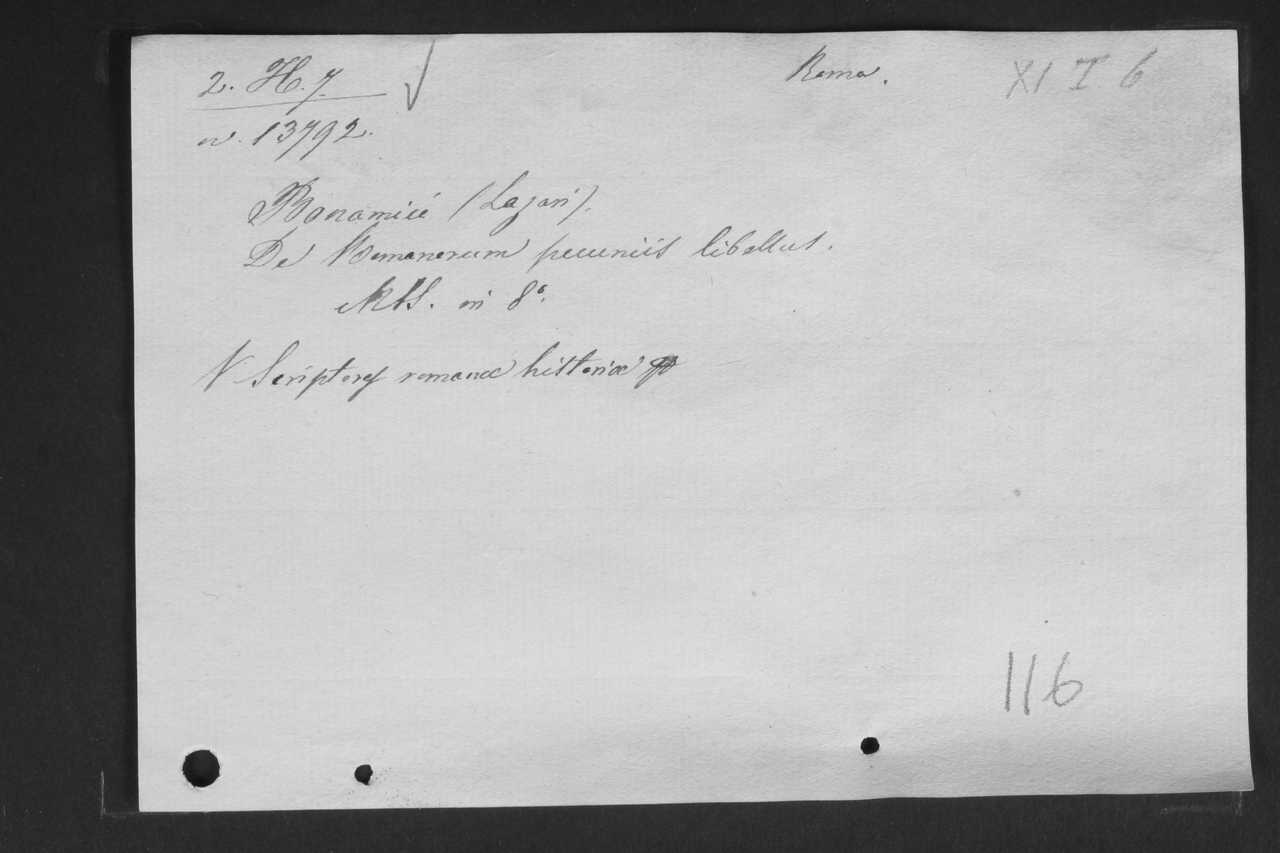 2. H. 7. Roma. XI I 6
n. 13792.
Bonamicii (Lazari).
De Romanorum pecuniis libellus.
MSS. in 8°.
V Scriptores romanæ historiæ
116